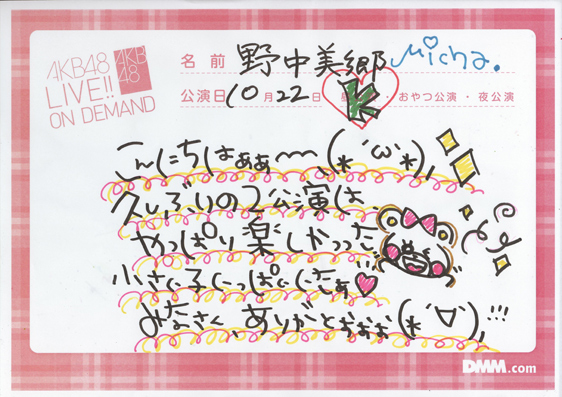 AKB48
LIVE!!
ON DEMAND
AKB
48
名前 野中美郷 Micha.
公演日 10月22日 K ・おやつ公演・夜公演
こんにちはぁぁ〜(*´ω`*)
久しぶりの2公演は
やっぱり楽しかった
小さい子いっぱいいたぁ♥
みなさん、ありがとおぉぉ(*´∀`)!!!
DMM.com